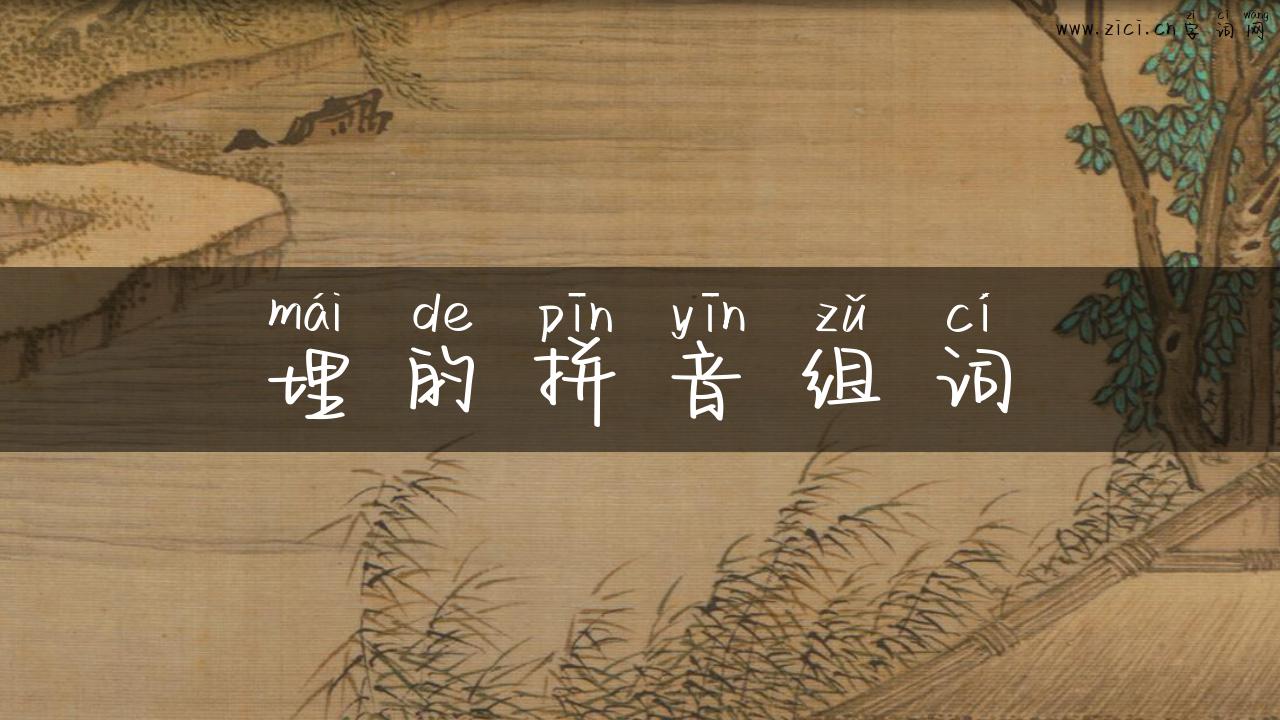 zì cí wǎng
www.zici.cn 字词网
mái de pīn yīn zǔ cí
埋的拼音组词